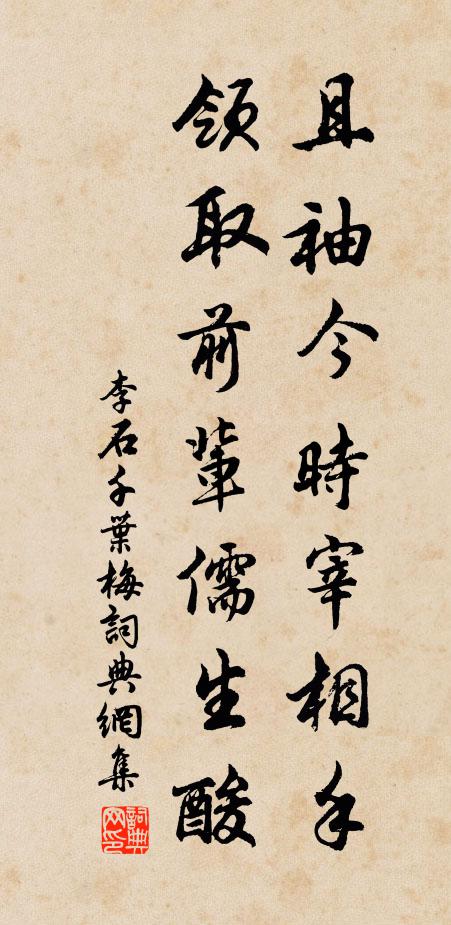 且袖今時宰相手
領取前輩儒生酸
李石千葉梅詞典網集
詞典网印